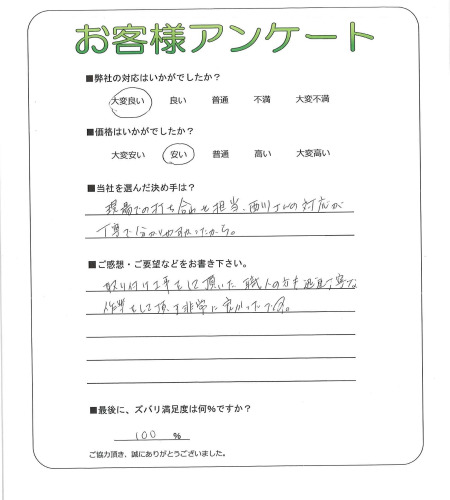 お客様アンケート
■弊社の対応はいかがでしたか？
大変良い 良い 普通 不満 大変不満
■価格はいかがでしたか？
大変安い 安い 普通 高い 大変高い
■当社を選んだ決め手は？
現場での打ち合わせ担当、西川さんの対応が
丁寧で分かりやすかったから。
■ご感想・ご要望などをお書き下さい。
取り付け工事をして頂いた職人の方も 丁寧な
作業をして頂き非常に良かったです。
■最後に、ズバリ満足度は何％ですか？
100 %
ご協力頂き、誠にありがとうございました。